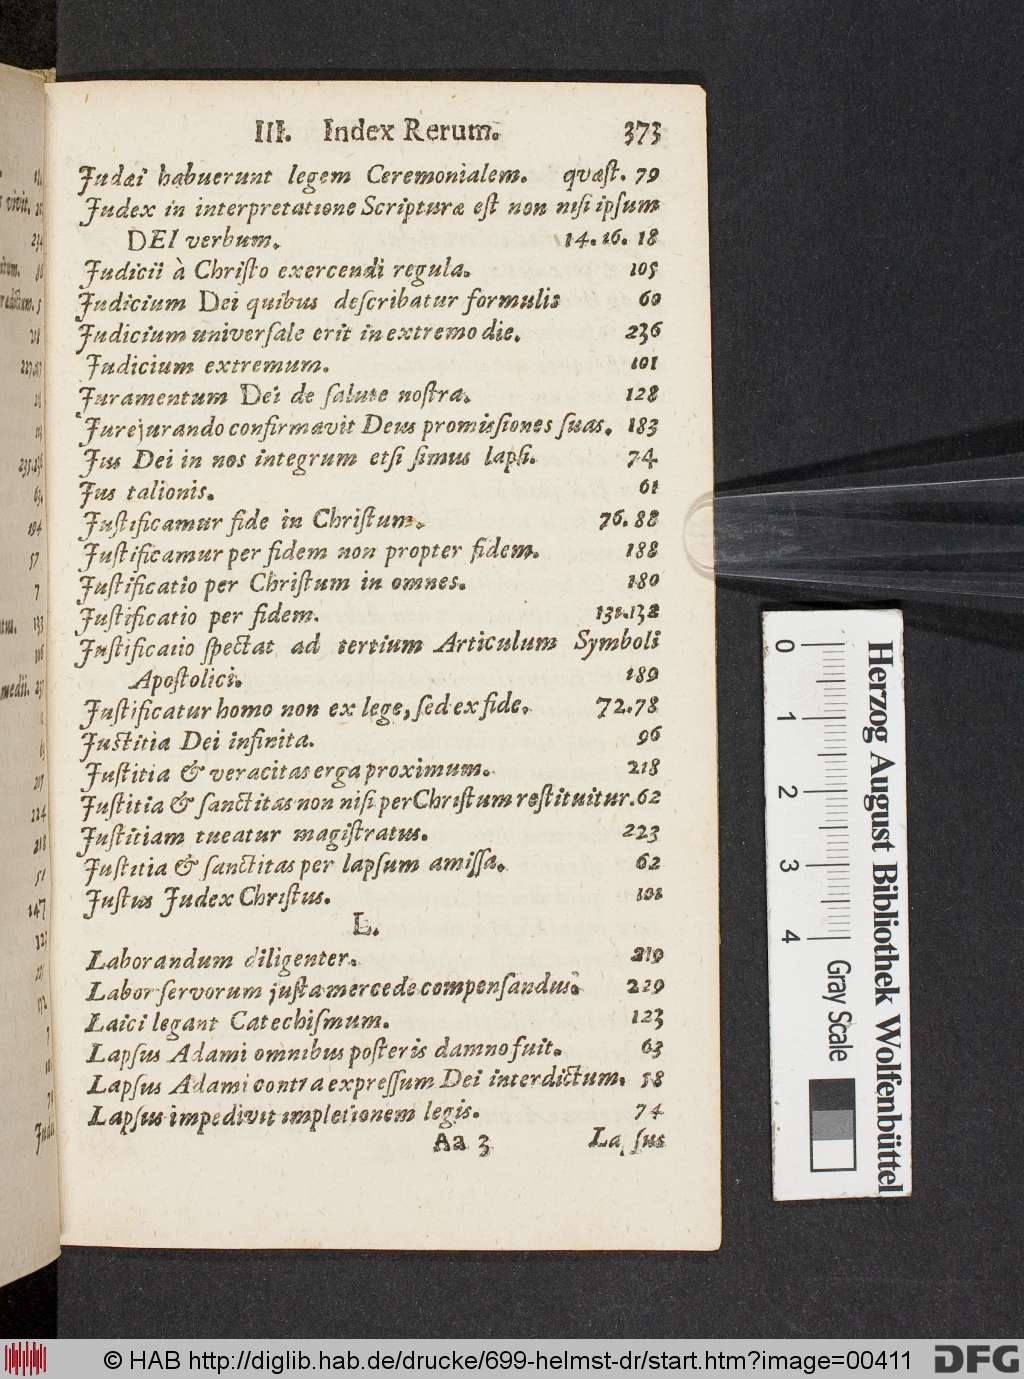 III. Index Rerum. 373
Judæi habuerunt legem Ceremonialem. qvæſt. 79
Judex in interpretatione Scripturæ eſt non niſi ipſum
DEI verbum. 14. 16. 18
Judicii à Chriſto exercendi regula. 105
Judicium Dei quibus deſcribatur formulis 60
Judicium univerſale erit in extremo die. 236
Judicium extremum. 101
Juramentum Dei de ſalute noſtra. 128
Jurejurando confirmavit Deus promiſſiones ſuas. 183
Jus Dei in nos integrum etſi ſimus lapſi. 74
Jus talionis. 61
Juſtificamur fide in Chriſtum. 76. 88
Juſtificamur per fidem non propter fidem. 188
Juſtificatio per Chriſtum in omnes. 180
Juſtificatio per fidem. 131.132
Juſtificatio ſpectat ad tertium Articulum Symboli
Apoſtolici. 189
Juſtificatur homo non ex lege, ſed ex fide. 72.78
Juſtitia Dei infinita. 96
Juſtitia & veracitas erga proximum. 218
Juſtitia & ſanctitas non niſi per Chriſtum reſtituitur. 62
Juſtitiam tueatur magiſtratus. 223
Juſtitia & ſanctitas per lapſum amiſſa. 62
Juſtus Judex Chriſtus. 101
L.
Laborandum diligenter. 219
Labor ſervorum juſta mercede compenſandus. 229
Laici legant Catechiſmum. 123
Lapſus Adami omnibus poſteris damno fuit. 63
Lapſus Adami contra expreſſum Dei interdictum. 58
Lapſus impedivit impletionem legis. 74
Aa 3 Lapſus
Herzog August Bibliothek Wolfenbüttel
0 1 2 3 4 Gray Scale
© HAB http://diglib.hab.de/drucke/699-helmst-dr/start.htm?image=00411 DFG